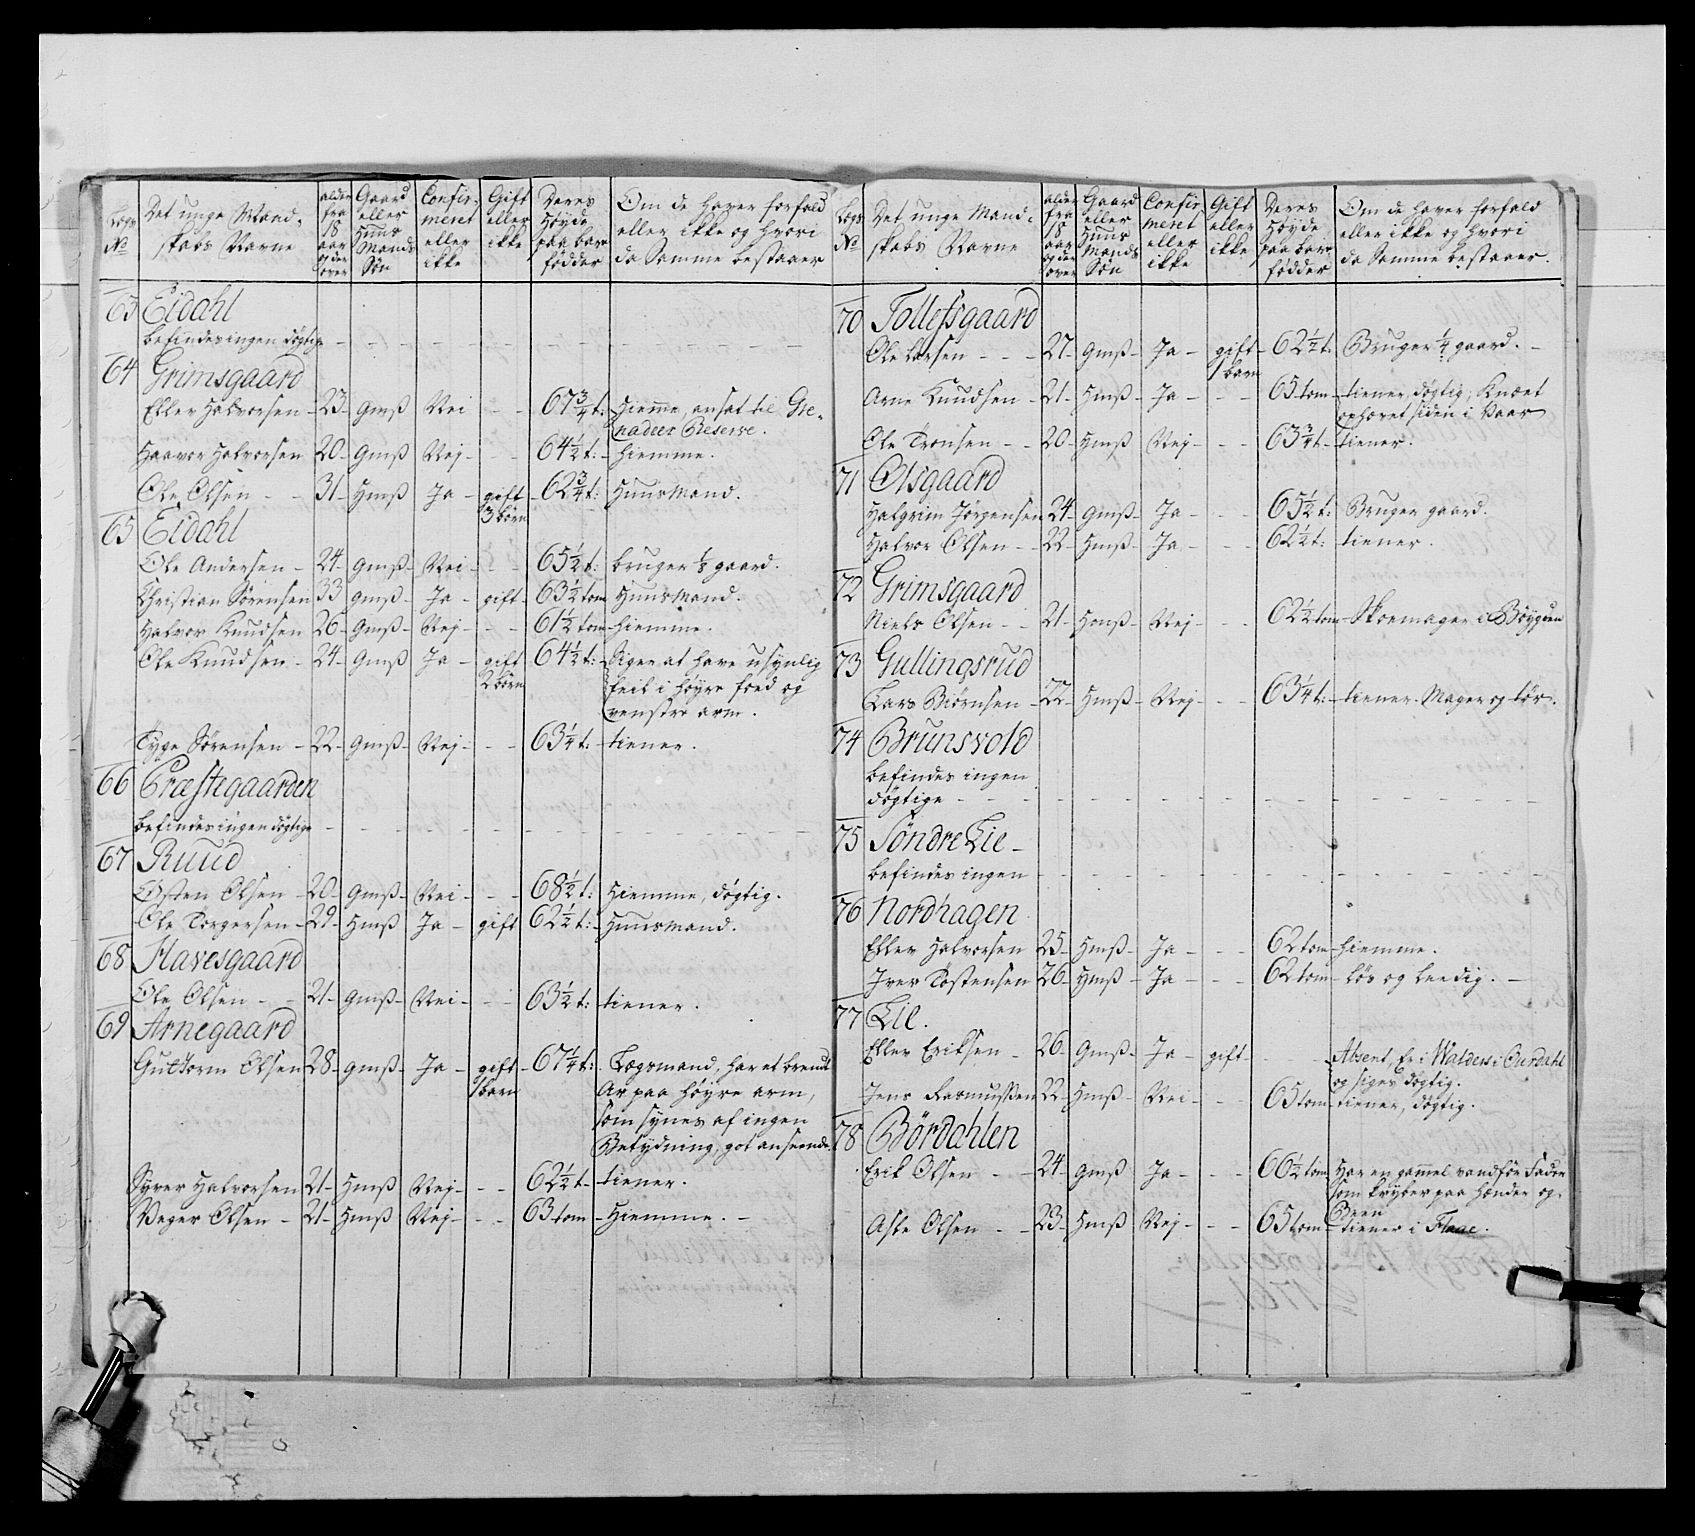 Legs No | Det unge Mand- skabs Navne | alder fra 18 aar og der over | Gaard eller Huus Mands Søn | Confir- meret eller ikke | Gift eller ikke | Deres Høyde paa bare fødder | Om de haver forfald eller ikke og hvori da Samme bestaaer
63 Eidahl
befindes ingen døgtige - - -
64 Grimsgaard
Eller Halvorsen - 23 - Gmß Nei - - 67 3/4 t: Hiemme, ansat til Gre-
nadeer Reserve.
Haavor Halvorsen 20 - Gmß Nej - - 64 1/2 t: - hiemme.
Ole Olsen - - 31 - Hmß Ja - gift - 62 3/4 t: Huusmand.
3 børn
65 Eidahl
Ole Andersen - 24 - Gmß - Nei - - 65 1/2 t: bruger 1/2 gaard.
Christian Sørensen 33 gmß - Ja - gift - 63 1/2 tom Huusmand.
Halvor Knudsen 26 - Gmß - Nej - - - 61 1/2 tom - hiemme.
Ole Knudsen - 24 - Gmß Ja - gift 64 1/2 t: Siger at have usynlig
2 børn feil i høyre foed og
venstre arm.
Tyge Sørensen - 22 - Gmß - Nej - - - 63 1/4 t: - tiener.
66 Præstegaarden
befindes ingen døgtige - - -
67 Ruud
Østen Olsen - 20 - Gmß - Nei - - - 68 1/2 t: Hiemme, døgtig.
Ole Torgersen - 29 - Hmß Ja - gift 62 1/2 t: - Huusmand.
68 Havesgaard
Ole Olsen - - 21 - Gmß - Nei - - - 63 1/2 t: tiener.
69 Arnegaard
Guttorm Olsen 28 - gmß - Ja - gift - 67 1/4 t: - Lægsmand, har et brendt
1 barn Ar paa høyre arm,
som synes af ingen
Betydning, got anseende.
Syver Halvorsen 21 - Hmß Nej - - - 62 1/2 t - tiener.
Veger Olsen - 21 - Hmß Nej - - - 63 tom - Hiemme. -
Legs No | Det unge Mand- skabs Navne | alder fra 18 aar og der over | Gaard eller Huus Mands Søn | Confir- meret eller ikke | Gift eller ikke | Deres Høyde paa bare fødder | Om de haver forfald eller ikke og hvori da Samme bestaaer.
70 Tollefsgaard
Ole Larsen - - - 27 - Gmß - Ja - gift - 62 1/2 t: Bruger 1/4 gaard. -
1 barn
Arne Knudsen - 21 - Hmß - Ja - - - 65 tom - tiener, døgtig, Knæet
ophovet siden i Vaar
Ole Tronsen - - 20 - Hmß Nej - - - 63 3/4 t - tiener.
71 Olsgaard
Halgrim Jørgensen 24 - Gmß - Ja - - - 65 1/2 t: Bruger gaard.
Halvor Olsen - - 22 - Hmß - Ja - - - 62 1/2 t: tiener.
72 Grimsgaard
Niels Olsen - - 21 - Hmß - Nej - - - 62 1/2 tom - Skoemager i Bøygden
73 Gullingsrud
Lars Biørnsen - 22 - Hmß - Nej - - - 63 1/4 t: - tiener. Mager og tør.
74 Brunsvold
befindes ingen
døgtige - - -
75 Søndre Lie -
befindes ingen - - -
76 Nordhagen
Eller Halvorsen 25 - Hmß - Ja - - - 62 tom - hiemme.
Iver Tostensen 26 - Hmß - Ja - - - 62 tom - løs og leedig. -
77 Lie.
Eller Eriksen - 26 - Gmß - Ja - gift - - Absent, Er i Walders i Ourdahl
og siges døgtig.
Jens Rasmussen 22 - Hmß - Nei - - - 65 tom - tiener, døgtig.
78 Børdahlen
Erik Olsen - - 24 - gmß - Ja - - - 66 1/2 tom Har en gammel vanfør Fader
som kryber paa Hænder og
Been
Asle Olsen - - 23 - Hmß - Nej - - - 65 tom - tiener i Flaae.